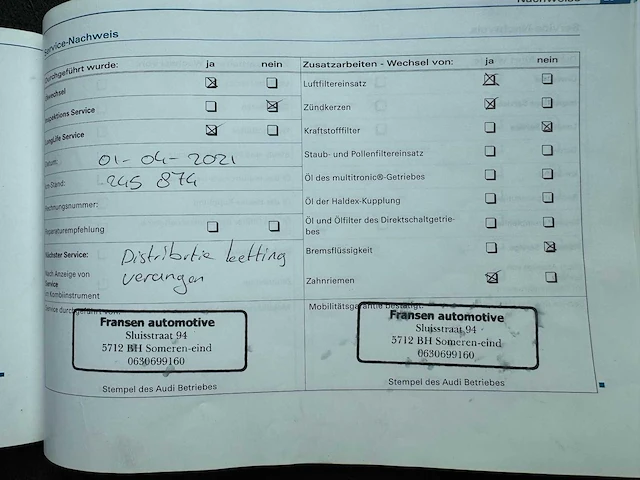 Service-Nachweis
Durchgeführt wurde: ja nein
Inspektions Service
LongLife Service
Datum: 01-04-2021
km Stand: 245 874
Rechnungsnummer:
Reparaturempfehlung
Nächster Service: Distributie ketting
Nach Anzeige von
Service
im Kombiinstrument
vervangen
Service durchgeführt von:
Fransen automotive
Sluisstraat 94
5712 BH Someren-eind
0630699160
Stempel des Audi Betriebes
Zusatzarbeiten - Wechsel von: ja nein
Luftfiltereinsatz
Zündkerzen
Kraftstofffilter
Staub- und Pollenfiltereinsatz
Öl des multitronic®-Getriebes
Öl der Haldex-Kupplung
Öl und Ölfilter des Direktschaltgetrie-
bes
Bremsflüssigkeit
Zahnriemen
Mobilitätsgarantie bestätigt:
Fransen automotive
Sluisstraat 94
5712 BH Someren-eind
0630699160
Stempel des Audi Betriebes